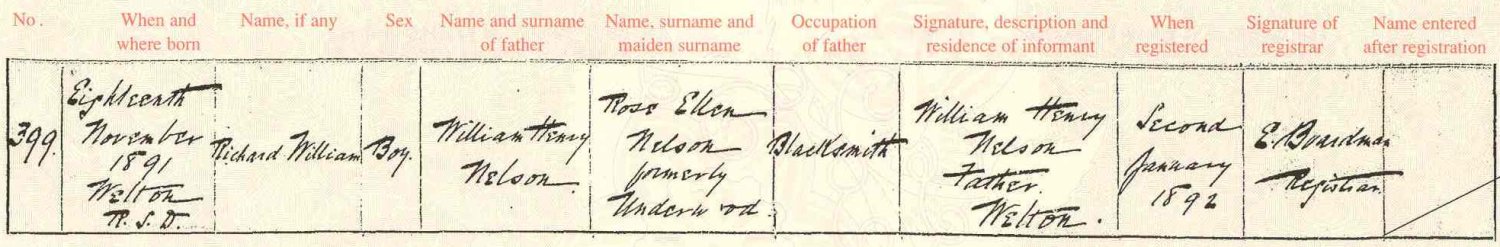 No.
When and
where born
Name, if any
Sex
Name and surname
of father
Name, surname and
maiden surname
Occupation
of father
Signature, description and
residence of informant
When
registered
Signature of
registrar
Name entered
after registration
399.
Eighteenth
November
1891
Welton
R.S.D.
Richard William
Boy.
William Henry
Nelson
Rose Ellen
Nelson
formerly
Underwood
Blacksmith
William Henry
Nelson
Father.
Welton.
Second
January
1892
E. Boardman
Registrar